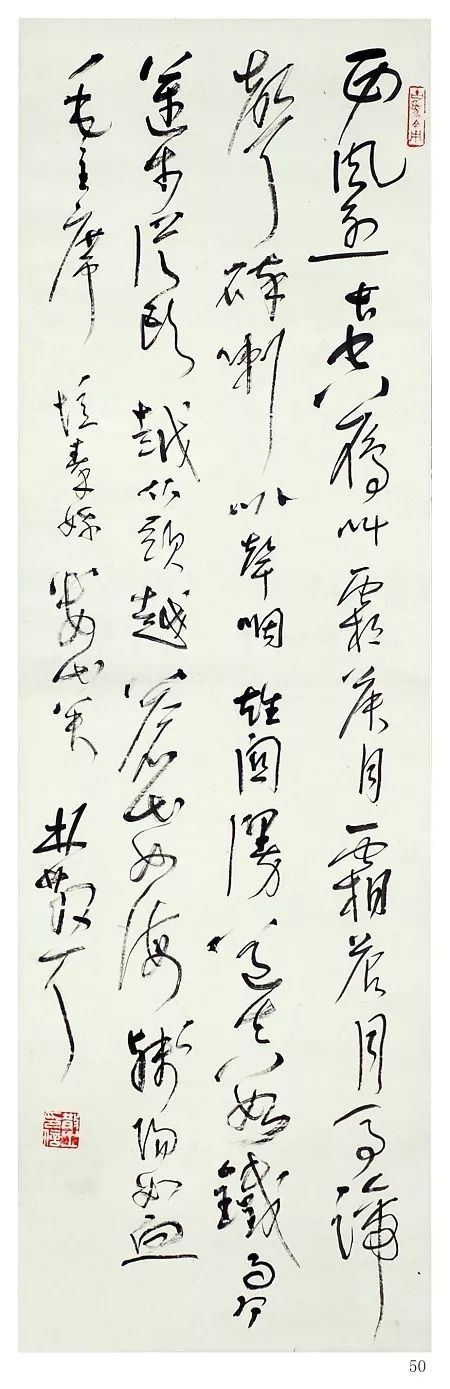 西風烈長空雁叫霜晨月霜晨月馬蹄
聲碎喇叭聲咽雄關漫道真如鐵而今
邁步從頭越從頭越蒼山如海殘陽如血
毛主席憶秦娥婁山關 林散耳
50